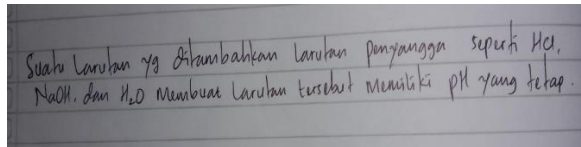 Suatu Larutan yg ditambahkan Larutan penyangga seperti HCl,
NaOH, dan H₂O Membuat Larutan tersebut Memiliki pH yang tetap.